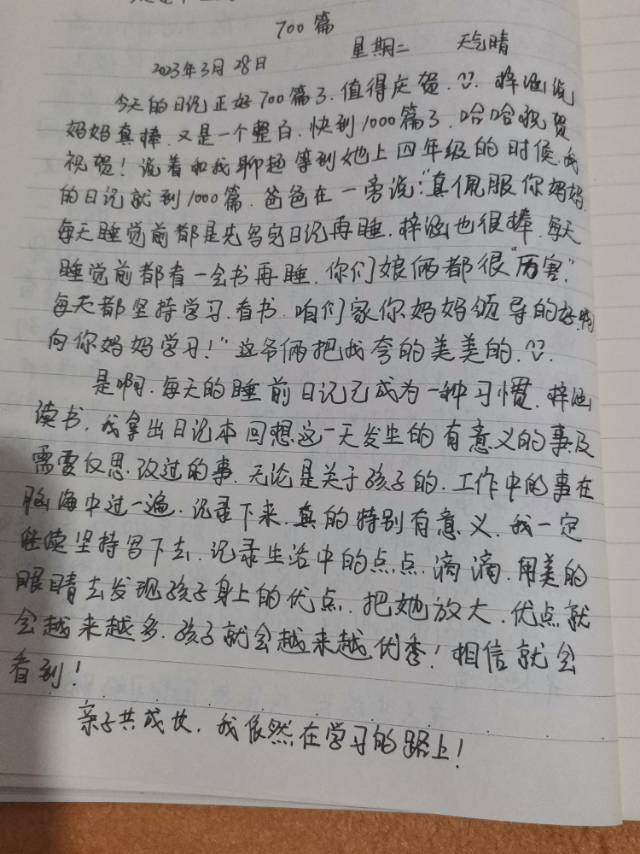 700篇
2023年3月28日 星期二 天气晴
今天的日记正好700篇了.值得庆贺.梓涵说
妈妈真棒.又是一个整百.快到1000篇了.哈哈祝贺
祝贺!说着和我聊起等到她上四年级的时候.我
的日记就到1000篇.爸爸在一旁说:"真佩服你妈妈.
每天睡觉前都是先写完日记再睡.梓涵也很棒.每天
睡觉前都看一会书再睡.你们娘俩都很"厉害".
每天都坚持学习.看书.咱们家你妈妈领导的好.
向你妈妈学习!"这爷俩把我夸的美美的.
是啊.每天的睡前日记已成为一种习惯.梓涵
读书.我拿出日记本回想这一天发生的有意义的事及
需要反思.改过的事.无论是关于孩子的.工作中的事在
脑海中过一遍.记录下来.真的特别有意义.我一定
继续坚持写下去.记录生活中的点点滴滴.用美的
眼睛去发现孩子身上的优点.把她放大.优点就
会越来越多.孩子就会越来越优秀!相信就会
看到!
亲子共成长.我依然在学习的路上!